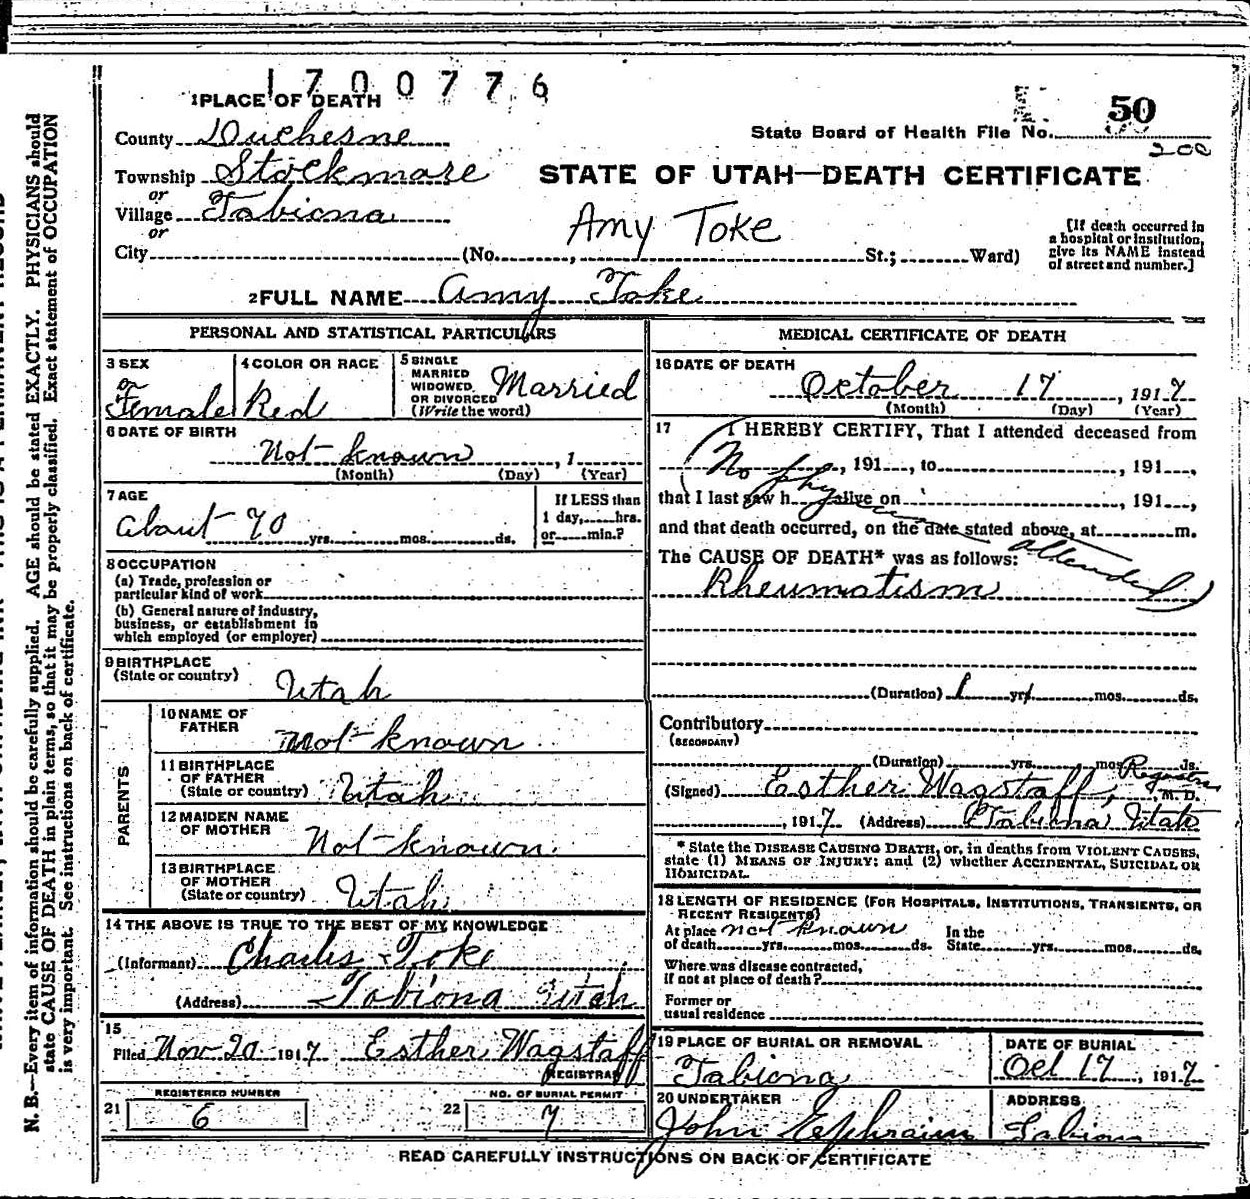 1700776
1 PLACE OF DEATH
50
County Duchesne
State Board of Health File No.
200
Township Stockmore
STATE OF UTAH—DEATH CERTIFICATE
or
Village Tabiona
or
Amy Toke
[If death occurred in
a hospital or institution,
give its NAME instead
of street and number.]
City (No. , St.; Ward)
2 FULL NAME Amy Toke
PERSONAL AND STATISTICAL PARTICULARS
3 SEX
Female
4 COLOR OR RACE
Red
5 SINGLE
MARRIED
WIDOWED
OR DIVORCED
(Write the word)
Married
6 DATE OF BIRTH
Not known , 1
(Month) (Day) (Year)
7 AGE
about 70 yrs. mos. ds.
If LESS than
1 day, hrs.
or min.?
8 OCCUPATION
(a) Trade, profession or
particular kind of work
(b) General nature of industry,
business, or establishment in
which employed (or employer)
9 BIRTHPLACE
(State or country) Utah
PARENTS
10 NAME OF
FATHER Not known
11 BIRTHPLACE
OF FATHER
(State or country) Utah
12 MAIDEN NAME
OF MOTHER Not known
13 BIRTHPLACE
OF MOTHER
(State or country) Utah
14 THE ABOVE IS TRUE TO THE BEST OF MY KNOWLEDGE
(Informant) Charles Toke
(Address) Tabiona Utah
15
Filed Nov 20 1917 Esther Wagstaff
REGISTRAR
REGISTERED NUMBER
21 6
NO. OF BURIAL PERMIT
22 7
MEDICAL CERTIFICATE OF DEATH
16 DATE OF DEATH
October 17 , 1917
(Month) (Day) (Year)
17 I HEREBY CERTIFY, That I attended deceased from
, 191 , to , 191 ,
that I last saw h alive on , 191 ,
and that death occurred, on the date stated above, at m.
(No physician attended)
The CAUSE OF DEATH* was as follows:
Rheumatism
(Duration) 1 yrs. mos. ds.
Contributory
(SECONDARY)
(Duration) yrs. mos. ds.
(Signed) Esther Wagstaff, Registrar M. D.
, 1917 (Address) Tabiona Utah
* State the DISEASE CAUSING DEATH, or, in deaths from VIOLENT CAUSES,
state (1) MEANS OF INJURY; and (2) whether ACCIDENTAL, SUICIDAL OR
HOMICIDAL.
18 LENGTH OF RESIDENCE (FOR HOSPITALS, INSTITUTIONS, TRANSIENTS, OR
RECENT RESIDENTS)
At place not known In the
of death yrs. mos. ds. State yrs. mos. ds.
Where was disease contracted,
if not at place of death?
Former or
usual residence
19 PLACE OF BURIAL OR REMOVAL
Tabiona
DATE OF BURIAL
Oct 17 , 1917
20 UNDERTAKER
John Ephraim
ADDRESS
Tabiona
READ CAREFULLY INSTRUCTIONS ON BACK OF CERTIFICATE
N. B.—Every item of information should be carefully supplied. AGE should be stated EXACTLY. PHYSICIANS should
state CAUSE OF DEATH in plain terms, so that it may be properly classified. Exact statement of OCCUPATION
is very important. See instructions on back of certificate.